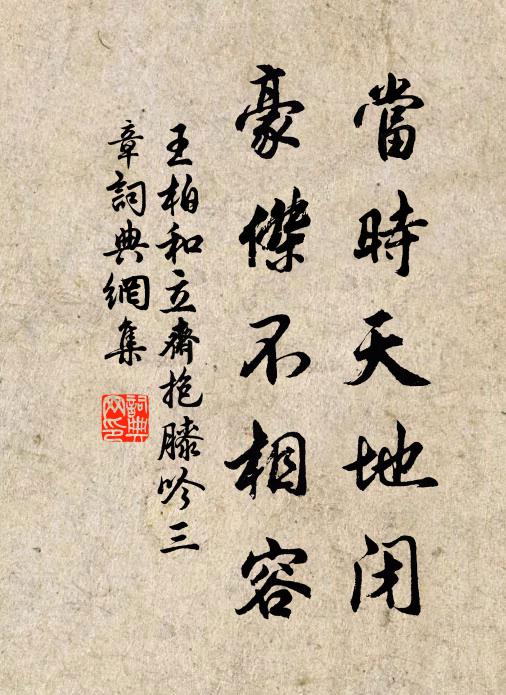 當時天地闭
豪傑不相容
王柏和立齋抱膝吟三
章詞典網集
詞典网印